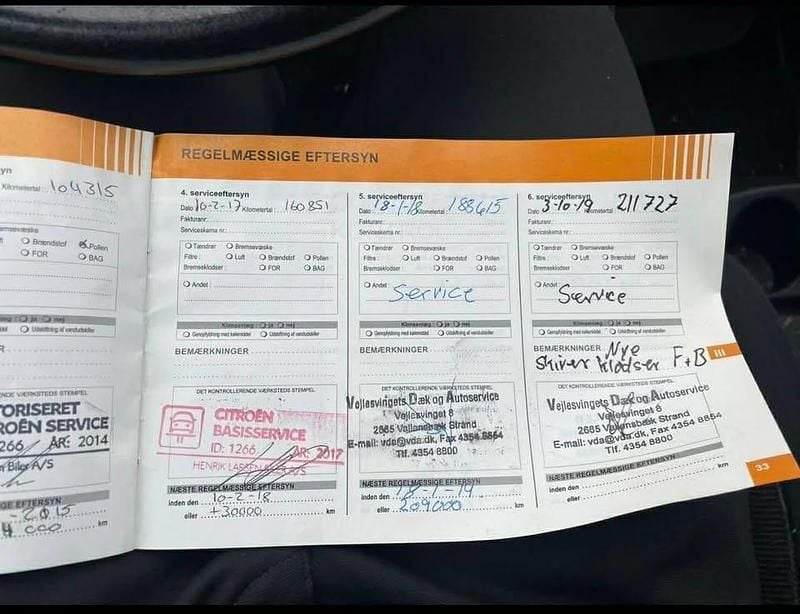 yn
Kilometertal: 104315
Brændstof Pollen
FOR BAG
ja nej
Udskiftning af vandudskiller
R
DET KONTROLLERENDE VÆRKSTEDS STEMPEL
TORISERET
ROËN SERVICE
266 ÅR: 2014
Biler A/S
GE EFTERSYN
- 2015
km
REGELMÆSSIGE EFTERSYN
4. serviceeftersyn
Dato 10-2-17 Kilometertal: 160851
Fakturanr.
Serviceskema nr.:
Tændrør Bremsevæske
Filtre: Luft Brændstof Pollen
Bremseklodser: FOR BAG
Andet:
Klimaanlæg: ja nej
Genopfyldning med kølemiddel Udskiftning af vandudskiller
BEMÆRKNINGER
DET KONTROLLERENDE VÆRKSTEDS STEMPEL
CITROËN
BASISSERVICE
ID: 1266 ÅR: 2017
HENRIK LARSEN A/S
NÆSTE REGELMÆSSIGE EFTERSYN
inden den 10-2-18
eller +30000 km
5. serviceeftersyn
Dato 18-1-18 Kilometertal: 188615
Fakturanr.
Serviceskema nr.:
Tændrør Bremsevæske
Filtre: Luft Brændstof Pollen
Bremseklodser: FOR BAG
Andet:
Service
Klimaanlæg: ja nej
Genopfyldning med kølemiddel Udskiftning af vandudskiller
BEMÆRKNINGER
DET KONTROLLERENDE VÆRKSTEDS STEMPEL
Vejlesvingets Dæk og Autoservice
Vejlesvinget 8
2665 Vallensbæk Strand
E-mail: vda@vda.dk, Fax 4354 8864
Tlf. 4354 8800
NÆSTE REGELMÆSSIGE EFTERSYN
inden den 18-1-19
eller 209000 km
6. serviceeftersyn
Dato 3-10-19 Kilometertal: 211727
Fakturanr.
Serviceskema nr.:
Tændrør Bremsevæske
Filtre: Luft Brændstof Pollen
Bremseklodser: FOR BAG
Andet:
Service
Klimaanlæg: ja nej
Genopfyldning med kølemiddel Udskiftning af vandudskiller
BEMÆRKNINGER Nye
Skiver klodser F+B
III
DET KONTROLLERENDE VÆRKSTEDS STEMPEL
Vejlesvingets Dæk og Autoservice
Vejlesvinget 8
2665 Vallensbæk Strand
E-mail: vda@vda.dk, Fax 4354 8864
Tlf. 4354 8800
NÆSTE REGELMÆSSIGE EFTERSYN
inden den
eller km
33